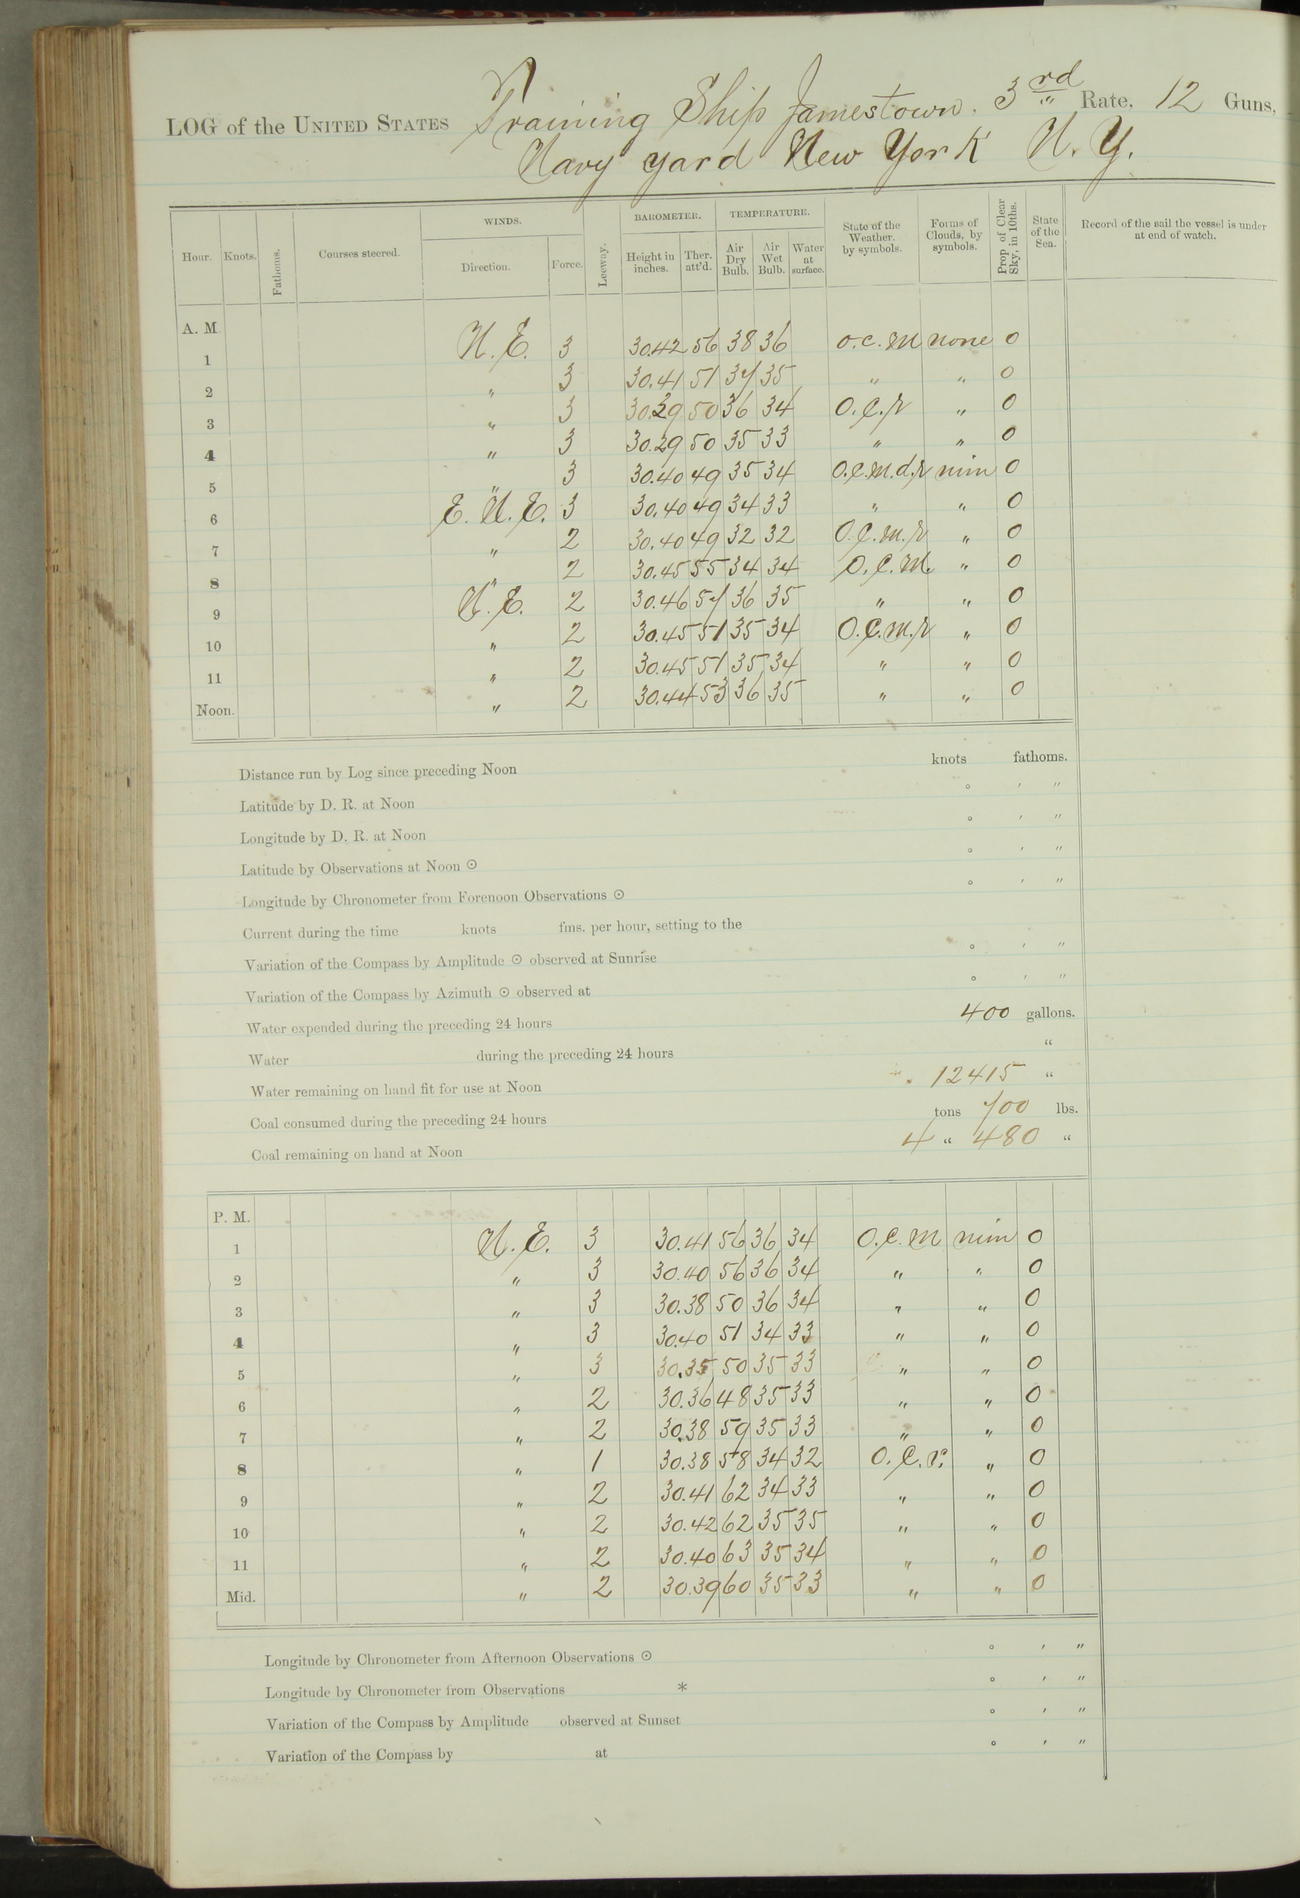 LOG of the UNITED STATES Training Ship Jamestown. 3rd Rate, 12 Guns,
Navy Yard New York N.Y.
Hour. Knots. Fathoms. Courses steered. WINDS. Direction. Force. Leeway. BAROMETER. Height in inches. Ther. att'd. TEMPERATURE. Air Dry Bulb. Air Wet Bulb. Water at surface. State of the Weather, by symbols. Forms of Clouds, by symbols. Prop of Clear Sky, in 10ths. State of the Sea. Record of the sail the vessel is under at end of watch.
A. M.
1 N.E. 3 30.42 56 38 36 o.c.m none 0
2 " 3 30.41 51 37 35 " " 0
3 " 3 30.29 50 36 34 O.C.r " 0
4 " 3 30.29 50 35 33 " " 0
5 " 3 30.40 49 35 34 O.C.m.d.r nim 0
6 E.N.E. 3 30.40 49 34 33 " " 0
7 " 2 30.40 49 32 32 O.C.m.r " 0
8 " 2 30.45 55 34 34 O.C.M. " 0
9 N.E. 2 30.46 57 36 35 " " 0
10 " 2 30.45 51 35 34 O.C.m.r " 0
11 " 2 30.45 51 35 34 " " 0
Noon. " 2 30.44 53 36 35 " " 0
Distance run by Log since preceding Noon knots fathoms.
Latitude by D. R. at Noon ° ' "
Longitude by D. R. at Noon ° ' "
Latitude by Observations at Noon ⊙ ° ' "
Longitude by Chronometer from Forenoon Observations ⊙ ° ' "
Current during the time knots fms. per hour, setting to the
Variation of the Compass by Amplitude ⊙ observed at Sunrise ° ' "
Variation of the Compass by Azimuth ⊙ observed at ° ' "
Water expended during the preceding 24 hours 400 gallons.
Water during the preceding 24 hours "
Water remaining on hand fit for use at Noon 12415 "
Coal consumed during the preceding 24 hours tons 700 lbs.
Coal remaining on hand at Noon 4 " 480 "
P. M.
1 N.E. 3 30.41 56 36 34 O.C.M nim 0
2 " 3 30.40 56 36 34 " " 0
3 " 3 30.38 50 36 34 " " 0
4 " 3 30.40 51 34 33 " " 0
5 " 3 30.35 50 35 33 " " 0
6 " 2 30.36 48 35 33 " " 0
7 " 2 30.38 59 35 33 " " 0
8 " 1 30.38 58 34 32 O.C.r. " 0
9 " 2 30.41 62 34 33 " " 0
10 " 2 30.42 62 35 35 " " 0
11 " 2 30.40 63 35 34 " " 0
Mid. " 2 30.39 60 35 33 " " 0
Longitude by Chronometer from Afternoon Observations ⊙ ° ' "
Longitude by Chronometer from Observations * ° ' "
Variation of the Compass by Amplitude observed at Sunset ° ' "
Variation of the Compass by at ° ' "